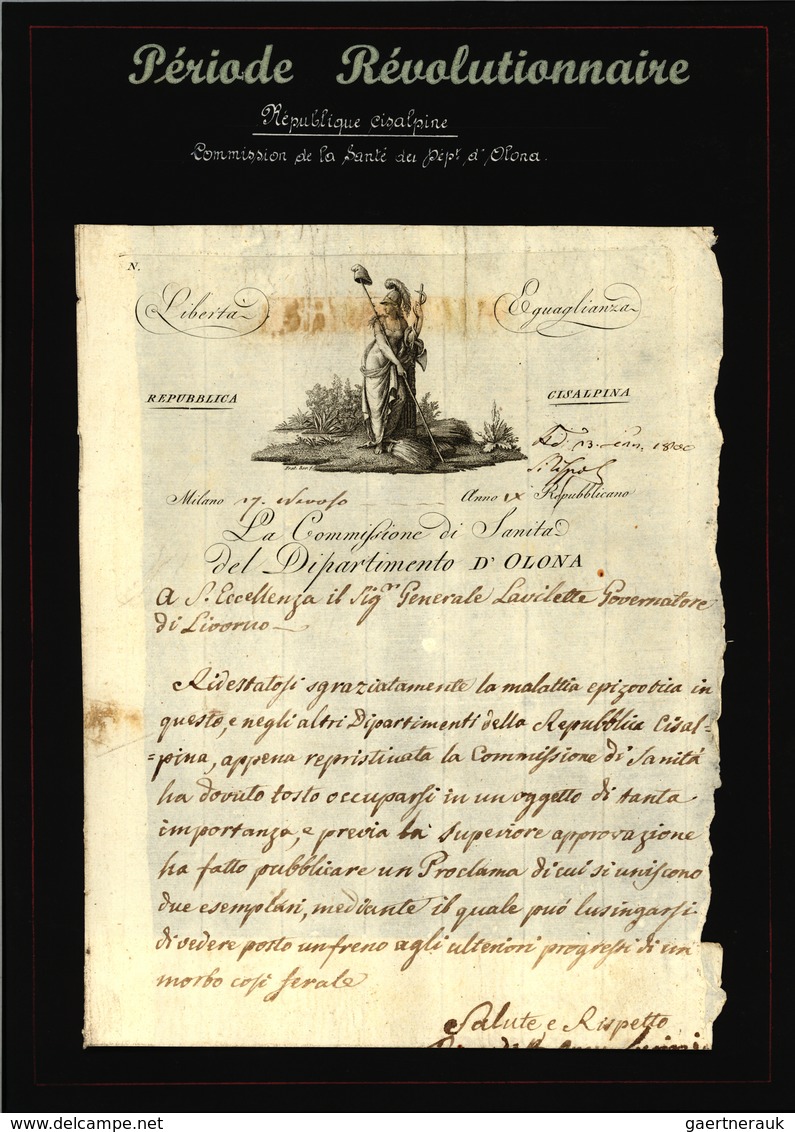 Période Révolutionnaire
République Cisalpine
Commission de la Santé du Dépt d'Olona.
N.
Libertà Eguaglianza
REPUBBLICA CISALPINA
1800
Milano 17. Nevoso Anno IX Repubblicano
La Commissione di Sanità
del Dipartimento D'OLONA
A S. Eccellenza il Sigr Generale Lavilette Governatore
di Livorno
Ridestatosi sgraziatamente la malattia epizootica in
questo, e negli altri Dipartimenti della Repubblica Cisal=
=pina, appena repristinata la Commissione di Sanità
ha dovuto tosto occuparsi in un oggetto di tanta
importanza, e previa la superiore approvazione
ha fatto pubblicare un Proclama di cui si uniscono
due esemplari, mediante il quale può lusingarsi
di vedere posto un freno agli ulteriori progressi di un
morbo così ferale
Salute e Rispetto
gaertnerauk delcampe.net